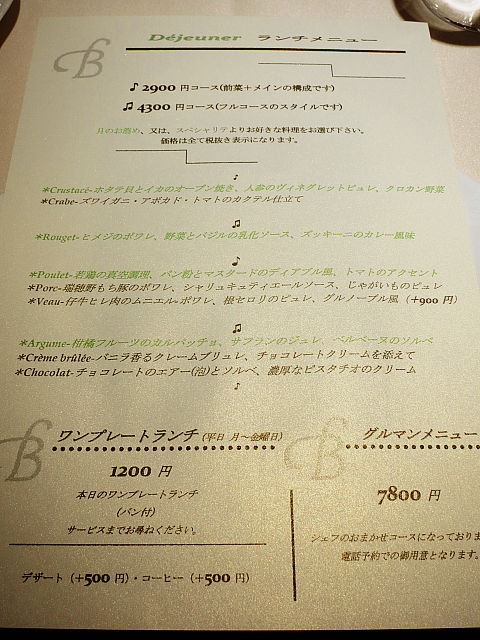 Déjeuner ランチメニュー
B
♪ 2900 円コース(前菜＋メインの構成です)
♫ 4300 円コース(フルコースのスタイルです)
月のお薦め、又は、スペシャリテよりお好きな料理をお選び下さい。
価格は全て税抜き表示になります。
♪
*Crustacé-ホタテ貝とイカのオーブン焼き、人参のヴィネグレットピュレ、クロカン野菜
*Crabe-ズワイガニ・アボカド・トマトのカクテル仕立て
♫
*Rouget-ヒメジのポワレ、野菜とバジルの乳化ソース、ズッキーニのカレー風味
♪
*Poulet-若鶏の真空調理、パン粉とマスタードのディアブル風、トマトのアクセント
*Porc-瑞穂野もち豚のポワレ、シャリュキュティエールソース、じゃがいものピュレ
*Veau-仔牛ヒレ肉のムニエル-ポワレ、根セロリのピュレ、グルノーブル風（+900 円）
♫
*Argume-柑橘フルーツのカルパッチョ、サフランのジュレ、ベルベーヌのソルベ
*Crème brûlée-バニラ香るクレームブリュレ、チョコレートクリームを添えて
*Chocolat-チョコレートのエアー(泡)とソルベ、濃厚なピスタチオのクリーム
♪
B ワンプレートランチ(平日 月～金曜日)
1200 円
本日のワンプレートランチ
(パン付)
サービスまでお尋ねください。
デザート（+500 円）・コーヒー（+500 円）
B グルマンメニュー
7800 円
シェフのおまかせコースになっておりま
電話予約での御用意となります。